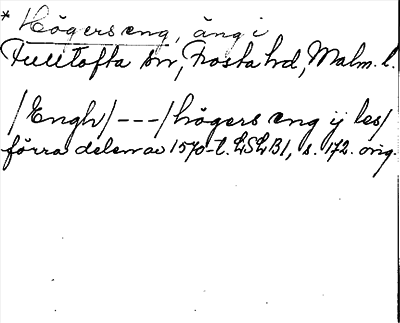 * Högers eng, äng i
Fulltofta sn, Frosta hd, Malm. l.
/Engh/---/högers eng ij les/
förra delen av 1570-t. LSLB1, s. 172. orig.